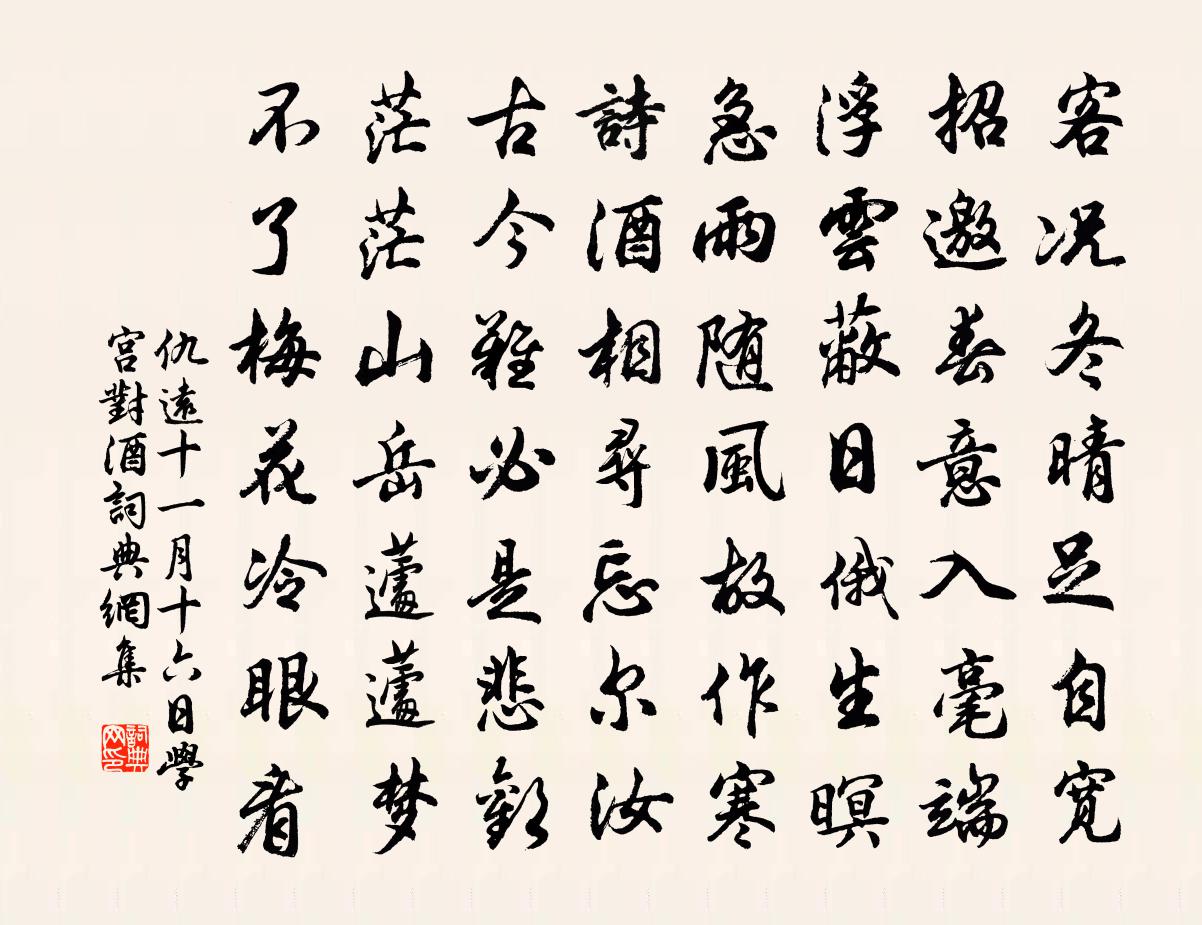 客况冬晴足自寬
招邀春意入毫端
浮雲蔽日俄生暝
急雨随風故作寒
詩酒相尋忘尔汝
古今難必是悲歡
茫茫山岳蘧蘧梦
不了梅花冷眼看
仇遠十一月十六日學
宮對酒詞典網集
詞典网印